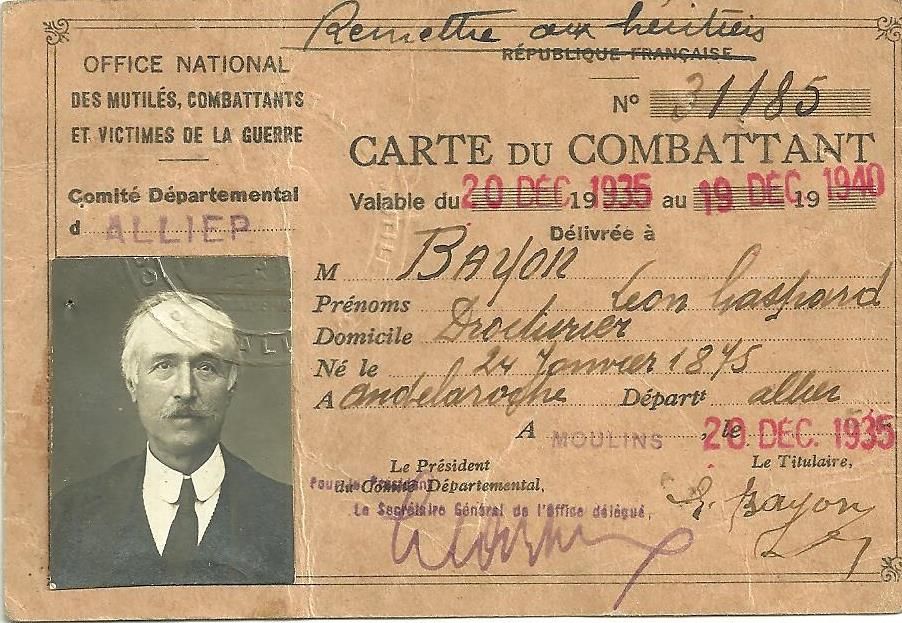 Remettre aux héritiers
RÉPUBLIQUE FRANÇAISE
OFFICE NATIONAL
DES MUTILÉS, COMBATTANTS
ET VICTIMES DE LA GUERRE
Comité Départemental
d ALLIER
N° 31185
CARTE DU COMBATTANT
Valable du 20 DÉC. 19 1935 au 19 DÉC. 19 1940
Délivrée à
M BAYON
Prénoms Léon Gaspard
Domicile Droiturier
Né le 24 Janvier 1875
A andelaroche Départt allier
A MOULINS, le 20 DÉC. 1935
Le Président
du Comité Départemental,
Pour le Président
Le Secrétaire Général de l'Office délégué,
Le Titulaire,
L. Bayon